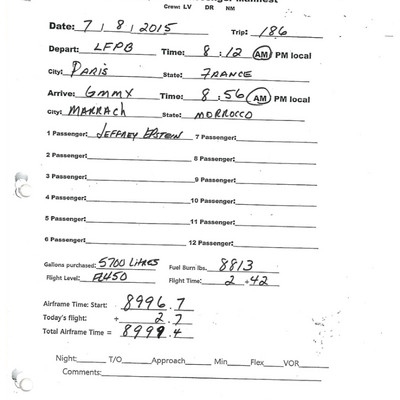 Passenger Manifest
Crew: LV DR NM
Date: 7 / 8 / 2015 Trip: 186
Depart: LFPB Time: 8 : 12 AM PM local
City: PARIS State: FRANCE
Arrive: GMMX Time: 8 : 56 AM PM local
City: MARRACH State: MORROCCO
1 Passenger: JEFFREY EPSTEIN 7 Passenger:
2 Passenger: 8 Passenger:
3 Passenger: 9 Passenger:
4 Passenger: 10 Passenger:
5 Passenger: 11 Passenger:
6 Passenger: 12 Passenger:
Gallons purchased: 5700 LITRES Fuel Burn lbs. 8813
Flight Level: FL450 Flight Time: 2 + 42
Airframe Time: Start: 8996.7
Today's flight: + 2.7
Total Airframe Time = 8999.4
Night: T/O Approach Min Flex VOR
Comments: